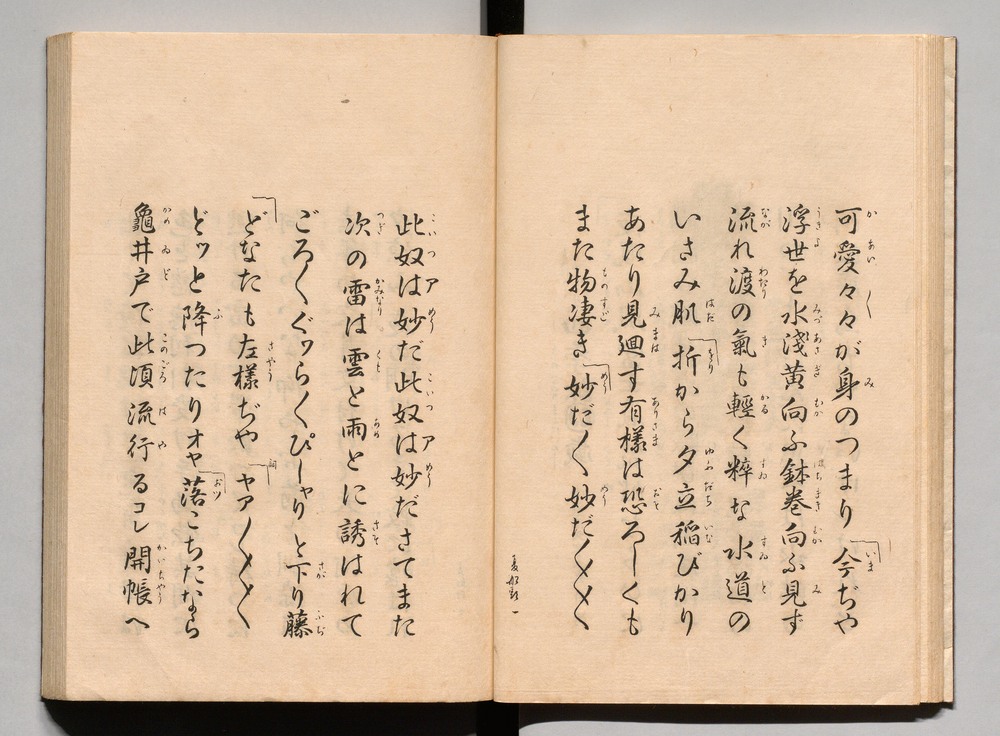 可愛々々が身のつまり「今ぢや
浮世を水淺黄向ふ鉢巻向ふ見ず
流れ渡の氣も輕く粹な水道の
いさみ肌「折から夕立稲びかり
あたり見廻す有様は恐ろしくも
また物凄き「妙だ〱妙だ〱〱〱
此奴ァは妙だ此奴ァは妙ださてまた
次の雷は雲と雨とに誘はれて
ごろ〱ぐわら〱ぴーしやりと下り藤
「どなたも左様ぢや「ヤア〱〱〱
どッと降つたりオヤ「落こちたなら
龜井戸で此頃流行るコレ開帳へ